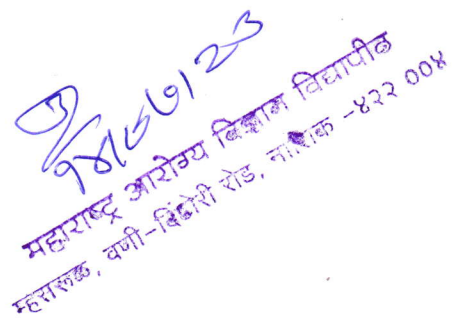 १४/०७/२३
महाराष्ट्र आरोग्य विज्ञान विद्यापीठ
म्हसरूळ, वणी-दिंडोरी रोड, नाशिक -४२२ ००४